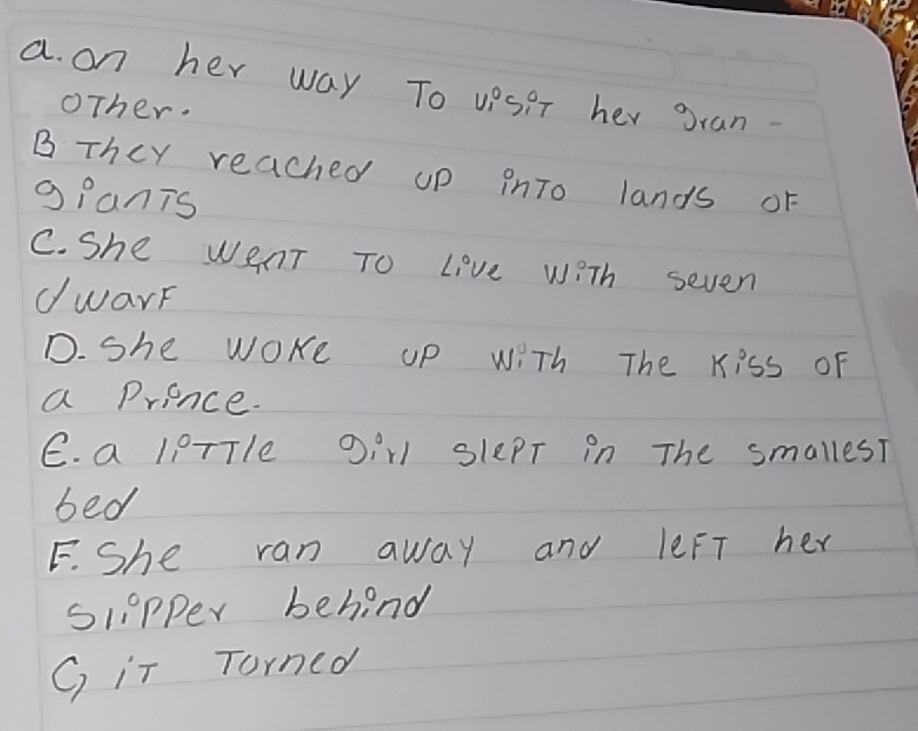 a. on her way To visiT her gran -
oTher.
B They reached up inTo lands oF
gianTs
C. She wenT To Live wiTh seven
dwarF
D. She woke up wiTh The Kiss oF
a Prince.
E. a liTTle girl slepT in The smallesT
bed
F. She ran away and leFT her
slipper behind
G iT Torned